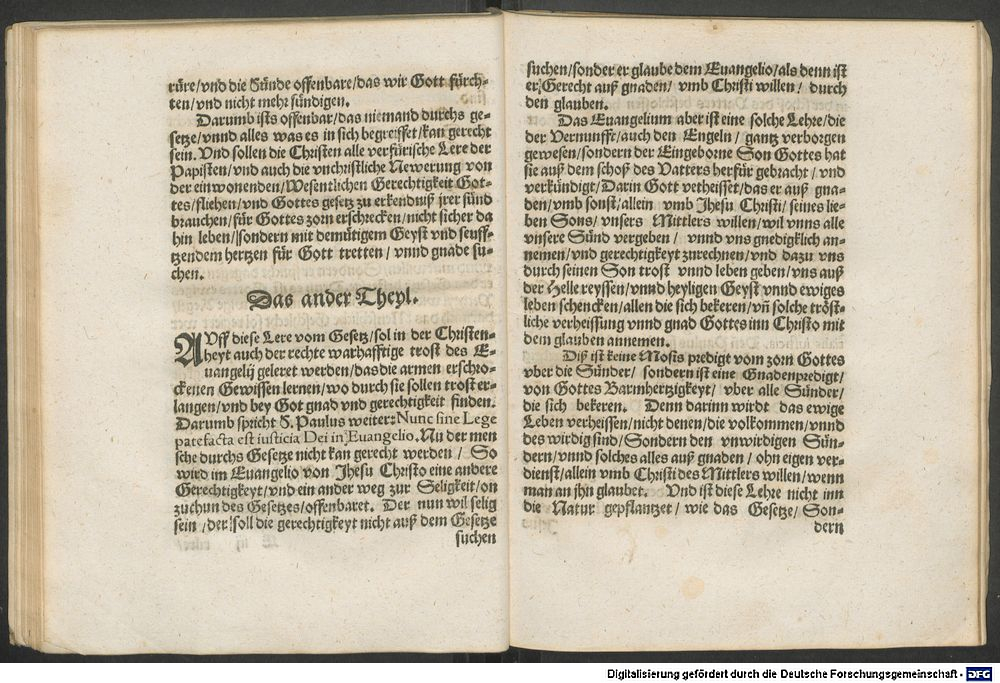 rüre/vnd die Sünde offenbare/das wir Gott fürch-
ten/vnd nicht mehr sündigen.
Darumb ists offenbar/das niemand durchs ge-
setze/vnnd alles was es in sich begreiffet/kan gerecht
sein. Vnd sollen die Christen alle verfürische Lere der
Papisten/vnd auch die vnchristliche Newerung von
der einwonenden/Wesentlichen Gerechtigkeit Got-
tes/fliehen/vnd Gottes gesetz zu erkendniß jrer sünd
brauchen/für Gottes zorn erschrecken/nicht sicher da
hin leben/sondern mit demütigem Geyst vnd seuff-
tzendem hertzen für Gott tretten/vnnd gnade su-
chen.
Das ander Theyl.
AVff diese Lere vom Gesetz/sol in der Christen-
heyt auch der rechte warhafftige trost des E-
uangelij geleret werden/das die armen erschro-
ckenen Gewissen lernen/wo durch sie sollen trost er-
langen/vnd bey Got gnad vnd gerechtigkeit finden.
Darumb spricht S. Paulus weiter: Nunc sine Lege
patefacta est iusticia Dei in Euangelio. Nu der men
sche durchs Gesetze nicht kan gerecht werden/ So
wird im Euangelio von Jhesu Christo eine andere
Gerechtigkeyt/vnd ein ander weg zur Seligkeit/on
zuchun des Gesetzes/offenbaret. Der nun wil selig
sein/der soll die gerechtigkeyt nicht auß dem Gesetze
suchen
suchen/sonder er glaube dem Euangelio/als denn ist
er Gerecht auß gnaden/ vmb Christi willen/ durch
den glauben.
Das Euangelium aber ist eine solche Lehre/die
der Vernunfft/auch den Engeln/ gantz verborgen
gewesen/sondern der Eingeborne Son Gottes hat
sie auß dem schoß des Vatters herfür gebracht/vnd
verkündigt/Darin Gott verheisset/das er auß gna-
den/vmb sonst/allein vmb Jhesu Christi/seines lie-
ben Sons/vnsers Mittlers willen/wil vnns alle
vnsere Sünd vergeben/ vnnd vns gnedigklich an-
nemen/vnd gerechtigkeyt zurechnen/vnd dazu vns
durch seinen Son trost vnnd leben geben/vns auß
der Helle reyssen/vnnd heyligen Geyst vnnd ewiges
leben schencken/allen die sich bekeren/vñ solche tröst-
liche verheissung vnnd gnad Gottes inn Christo mit
dem glauben annemen.
Diß ist keine Mosis predigt vom zorn Gottes
vber die Sünder/ sondern ist eine Gnadenpredigt/
von Gottes Barmhertzigkeyt/ vber alle Sünder/
die sich bekeren. Denn darinn wirdt das ewige
Leben verheissen/nicht denen/die volkommen/vnnd
des wirdig sind/Sondern den vnwirdigen Sün-
dern/vnnd solches alles auß gnaden/ ohn eigen ver-
dienst/allein vmb Christi des Mittlers willen/wenn
man an jhn glaubet. Vnd ist diese Lehre nicht inn
die Natur gepflantzet/ wie das Gesetze/ Son-
dern
Digitalisierung gefördert durch die Deutsche Forschungsgemeinschaft - DFG